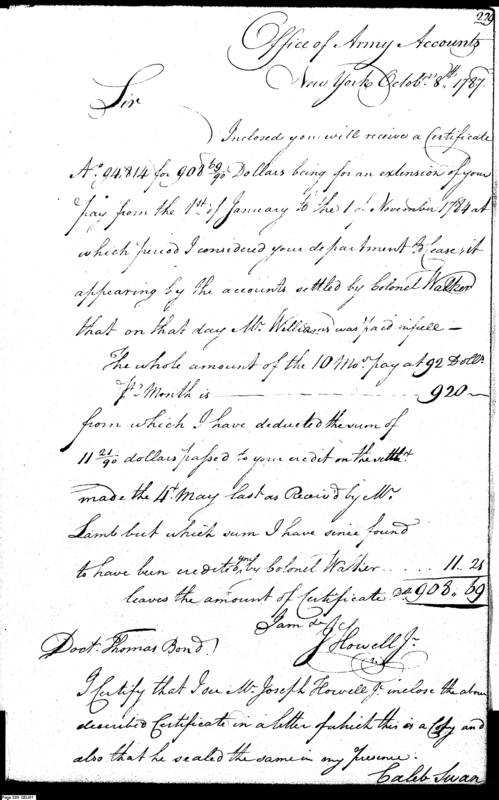 229
Office of Army Accounts
New York Octobr. 8th. 1787.
Sir
Inclosed you will receive a Certificate
No. 94.814 for 908 69/90 Dollars being for an extension of your
pay from the 1st. of January to the 1 of November 1784 at
which period I considered your department to cease, it
appearing by the accounts settled by Colonel Walker
that on that day Mr. Williams was paid in full —
The whole amount of the 10 Mos. pay at 92 Dollrs.
pr. Month is 920 —
from which I have deducted the sum of
11 21/90 dollars passed to your credit on the settlet.
made the 4t. May last as Receivd by Mr.
Lamb but which sum I have since found
to have been credited you by Colonel Walker . . . . . 11. 21
leaves the amount of Certificate Drs 908. 69
I am &c
J Howell Jr.
Doctr. Thomas Bond.
I Certify that I see Mr. Joseph Howell Jr. inclose the above
described Certificate in a letter of which this is a Copy and
also that he sealed the same in my presence.
Caleb Swan
Page 229 DDJ01